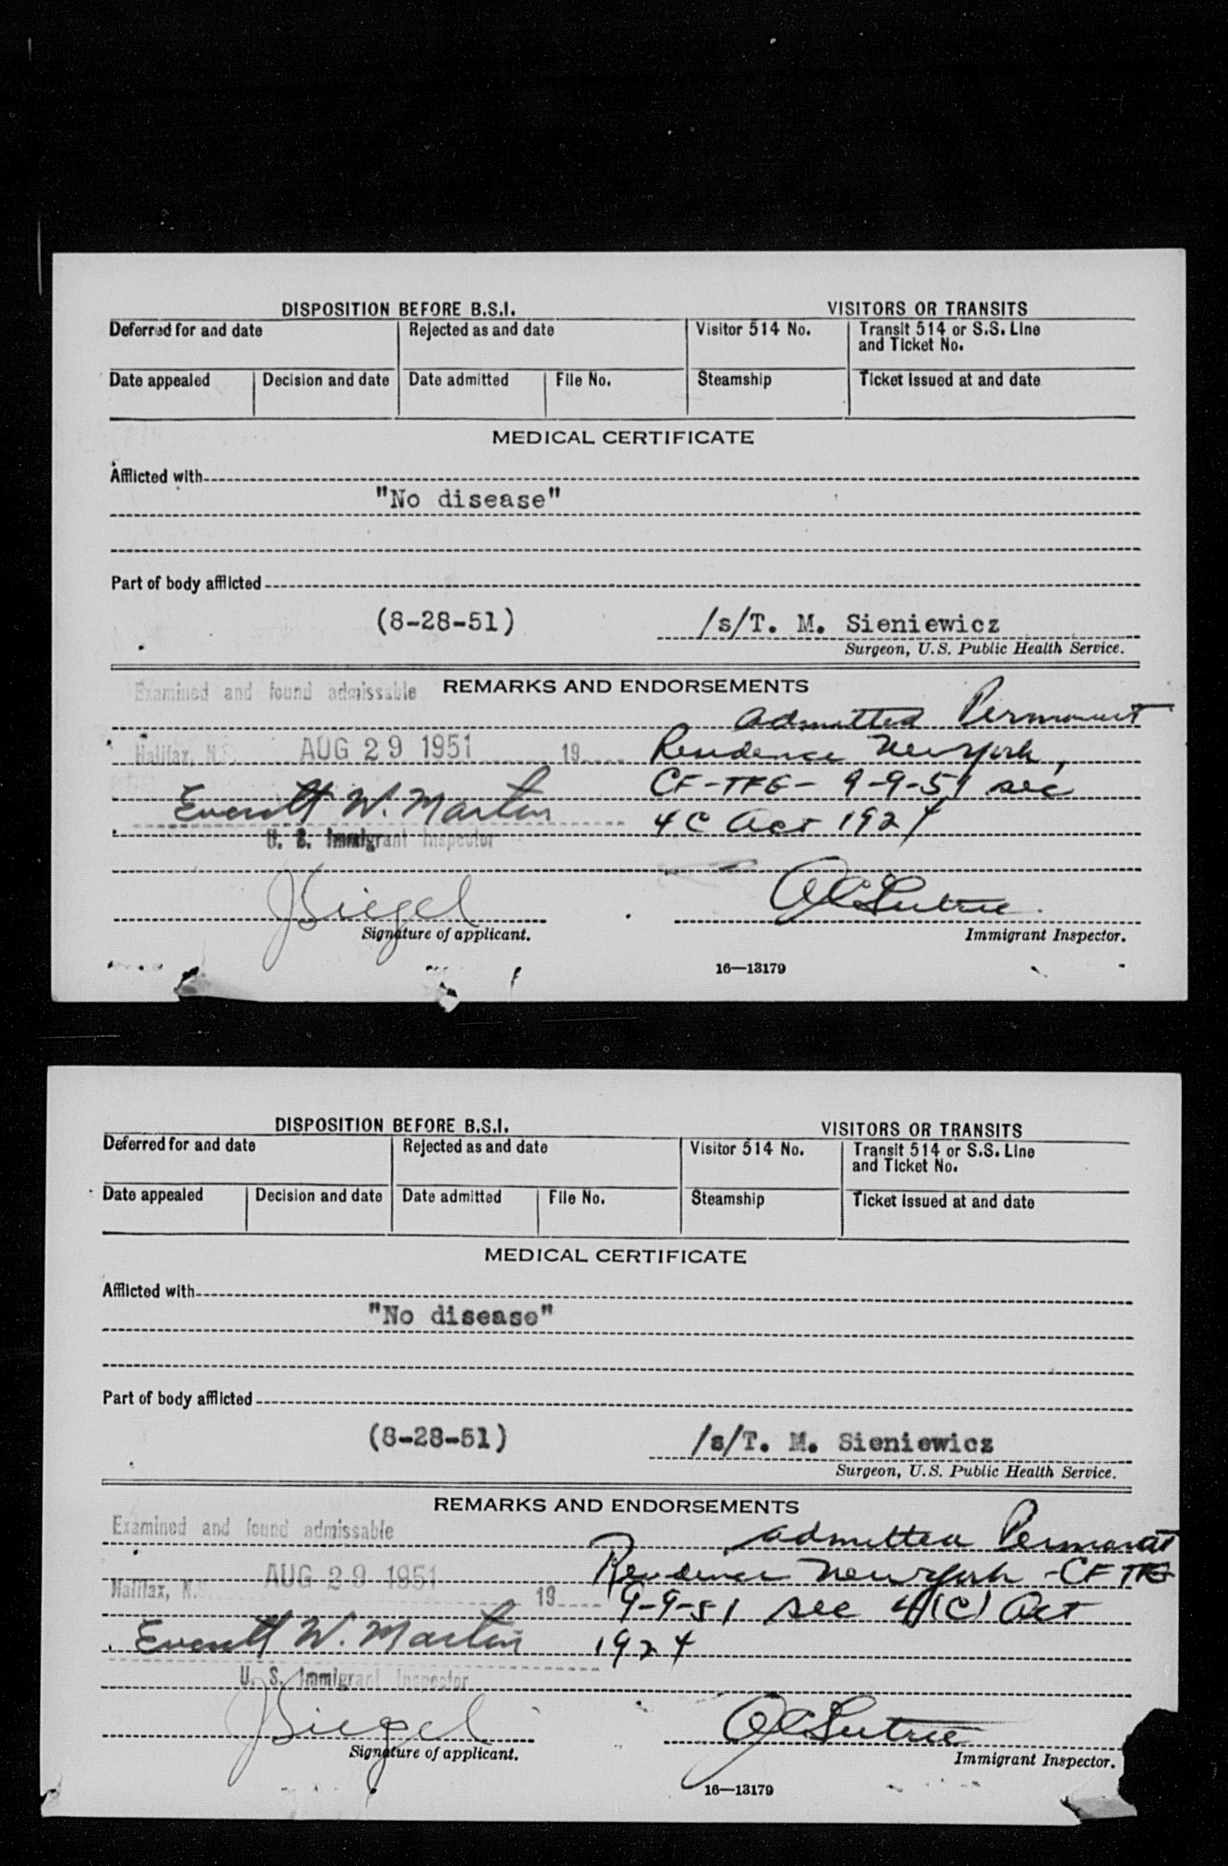 DISPOSITION BEFORE B.S.I. VISITORS OR TRANSITS
Deferred for and date Rejected as and date Visitor 514 No. Transit 514 or S.S. Line
and Ticket No.
Date appealed Decision and date Date admitted File No. Steamship Ticket issued at and date
MEDICAL CERTIFICATE
Afflicted with
"No disease"
Part of body afflicted
(8-28-51) /s/T. M. Sieniewicz
Surgeon, U.S. Public Health Service.
Examined and found admissable REMARKS AND ENDORSEMENTS
admitted Permanent
Halifax, N.S. AUG 29 1951 19 Residence New York,
CF-TFG- 9-9-51 sec
Everett W. Martin 4C Act 1924
U. S. Immigrant Inspector
J Siegel
Signature of applicant. Immigrant Inspector.
16—13179
DISPOSITION BEFORE B.S.I. VISITORS OR TRANSITS
Deferred for and date Rejected as and date Visitor 514 No. Transit 514 or S.S. Line
and Ticket No.
Date appealed Decision and date Date admitted File No. Steamship Ticket issued at and date
MEDICAL CERTIFICATE
Afflicted with
"No disease"
Part of body afflicted
(8-28-51) /s/T. M. Sieniewicz
Surgeon, U.S. Public Health Service.
REMARKS AND ENDORSEMENTS
Examined and found admissable admitted Permanent
Halifax, N. AUG 29 1951 Residence New York -CF TFG
19 9-9-51 sec 4(C) Act
Everett W. Martin 1924
U. S. Immigrant Inspector
J Siegel
Signature of applicant. Immigrant Inspector.
16—13179